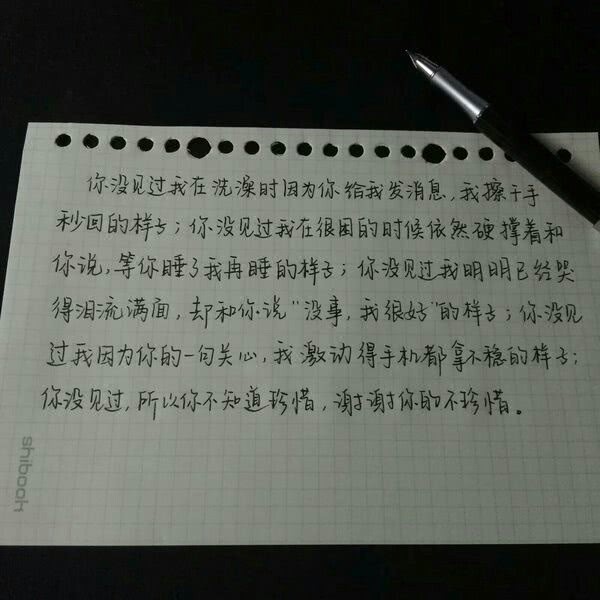 你没见过我在洗澡时因为你给我发消息，我擦干手
秒回的样子；你没见过我在很困的时候依然硬撑着和
你说，等你睡了我再睡的样子；你没见过我明明已经哭
得泪流满面，却和你说“没事，我很好”的样子；你没见
过我因为你的一句关心，我激动得手机都拿不稳的样子；
你没见过，所以你不知道珍惜，谢谢你的不珍惜。
shibook